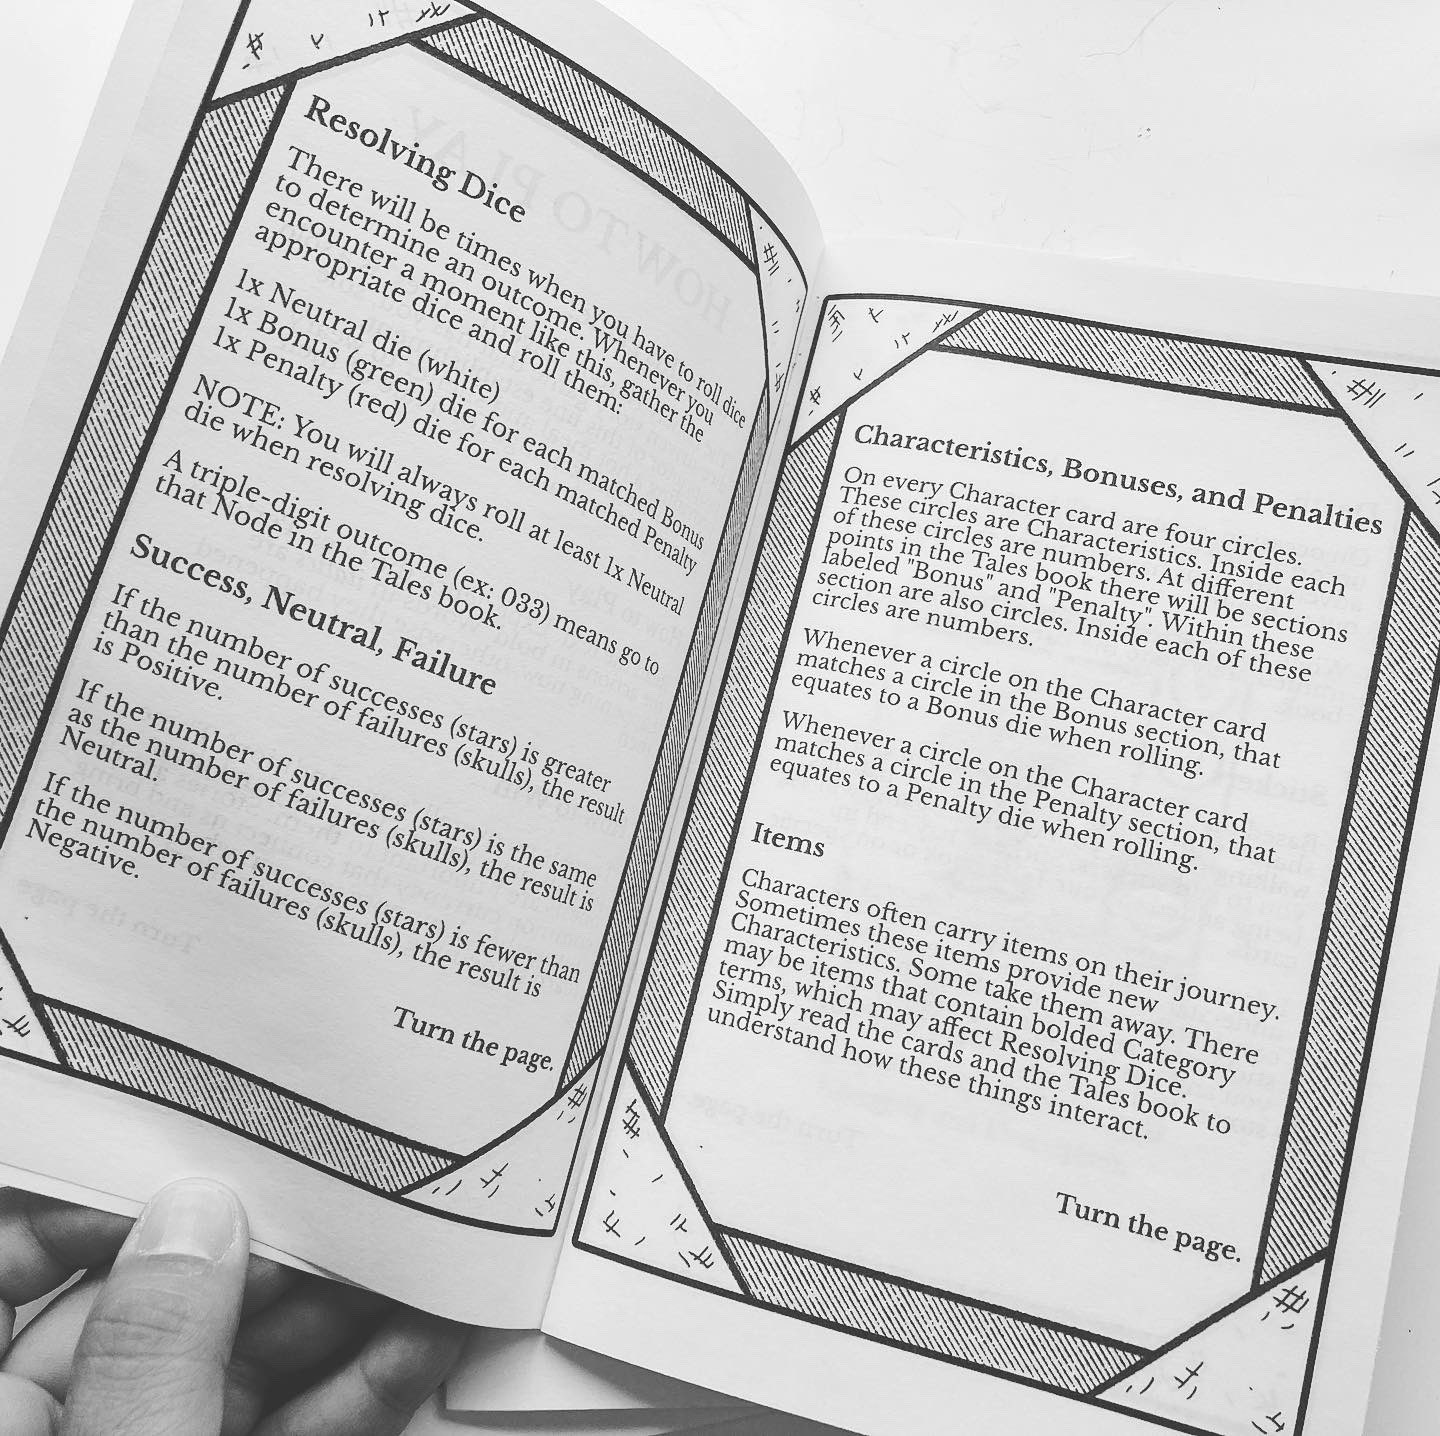 Resolving Dice
There will be times when you have to roll dice
to determine an outcome. Whenever you
encounter a moment like this, gather the
appropriate dice and roll them:
1x Neutral die (white)
1x Bonus (green) die for each matched Bonus
1x Penalty (red) die for each matched Penalty
NOTE: You will always roll at least 1x Neutral
die when resolving dice.
A triple-digit outcome (ex: 033) means go to
that Node in the Tales book.
Success, Neutral, Failure
If the number of successes (stars) is greater
than the number of failures (skulls), the result
is Positive.
If the number of successes (stars) is the same
as the number of failures (skulls), the result is
Neutral.
If the number of successes (stars) is fewer than
the number of failures (skulls), the result is
Negative.
Turn the page.
Characteristics, Bonuses, and Penalties
On every Character card are four circles.
These circles are Characteristics. Inside each
of these circles are numbers. At different
points in the Tales book there will be sections
labeled "Bonus" and "Penalty". Within these
section are also circles. Inside each of these
circles are numbers.
Whenever a circle on the Character card
matches a circle in the Bonus section, that
equates to a Bonus die when rolling.
Whenever a circle on the Character card
matches a circle in the Penalty section, that
equates to a Penalty die when rolling.
Items
Characters often carry items on their journey.
Sometimes these items provide new
Characteristics. Some take them away. There
may be items that contain bolded Category
terms, which may affect Resolving Dice.
Simply read the cards and the Tales book to
understand how these things interact.
Turn the page.